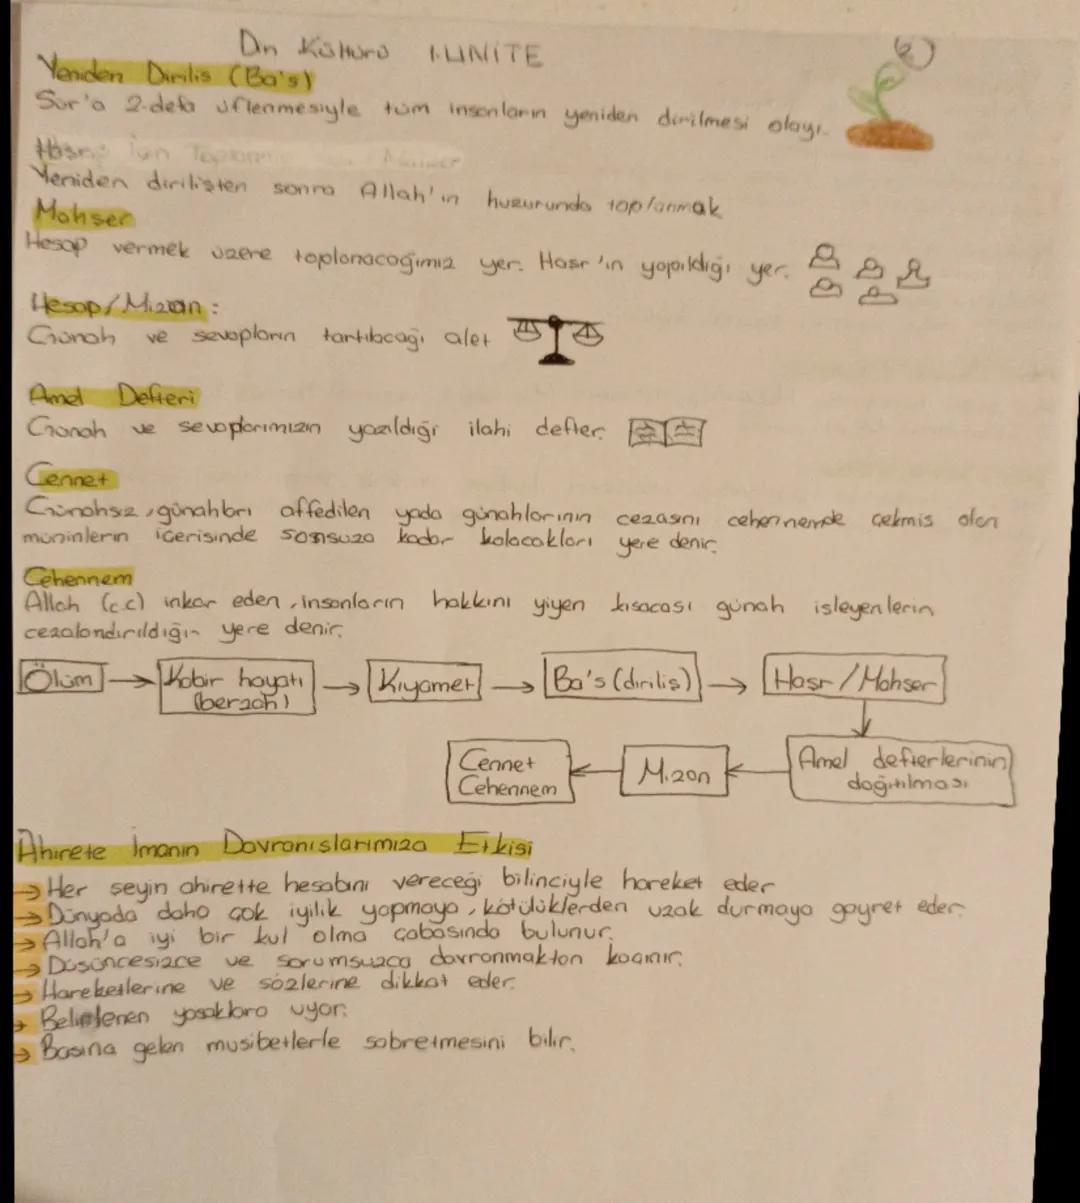 Din Kültürü 1.ÜNİTE
2
Yeniden Diriliş (Ba's)
Sur'a 2.defa üflenmesiyle tüm insanların yeniden dirilmesi olayı.
Haşr: için
Yeniden dirilişten sonra Allah'ın huzurunda toplanmak
Mahşer
Hesap vermek üzere toplanacağımız yer. Haşr'ın yapıldığı yer.
Hesap/Mizan:
Günah ve sevapların tartılacağı alet
Amel Defteri
Günah ve sevaplarımızın yazıldığı ilahi defter.
Cennet
Günahsız, günahları affedilen yada günahlarının cezasını cehennemde çekmiş olan
müminlerin içerisinde sonsuza kadar kalacakları yere denir.
Cehennem
Allah (c.c) inkar eden, insanların hakkını yiyen kısacası günah işleyenlerin
cezalandırıldığın yere denir.
Ölüm → Kabir hayatı (berzah) → Kıyamet → Ba's (diriliş) → Haşr/Mahşer
Amel defterlerinin dağıtılması
Mizan
Cennet
Cehennem
Ahirete İmanın Davranışlarımıza Etkisi
→ Her şeyin ahirette hesabını vereceği bilinciyle hareket eder
→ Dünyada daha çok iyilik yapmaya, kötülüklerden uzak durmaya gayret eder.
→ Allah'a iyi bir kul olma çabasında bulunur.
→ Düşüncesizce ve sorumsuzca davranmaktan kaçınır.
→ Hareketlerine ve sözlerine dikkat eder.
→ Belirlenen yasaklara uyar.
→ Başına gelen musibetlerle sabretmesini bilir.